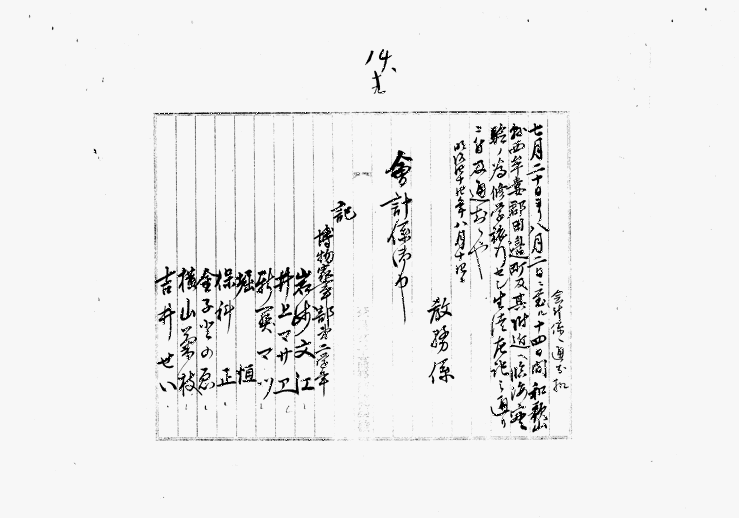 14.
会計係ヘ通知扣
七月二十日ヨリ八月二日ニ至ル十四日間和歌山
縣西牟婁郡田邉町及其附近ヘ臨海実
験ノ為修学旅行セシ生徒左記之通リ
ニ付及通知候也
明治四十四年八月十四日
教務係
會計係御中
記
博物家事部第二学年
岩崎文江
井上マサヱ
新賀マツ
堀恒
保科正
金子とのゑ
横山菊枝
吉井せい